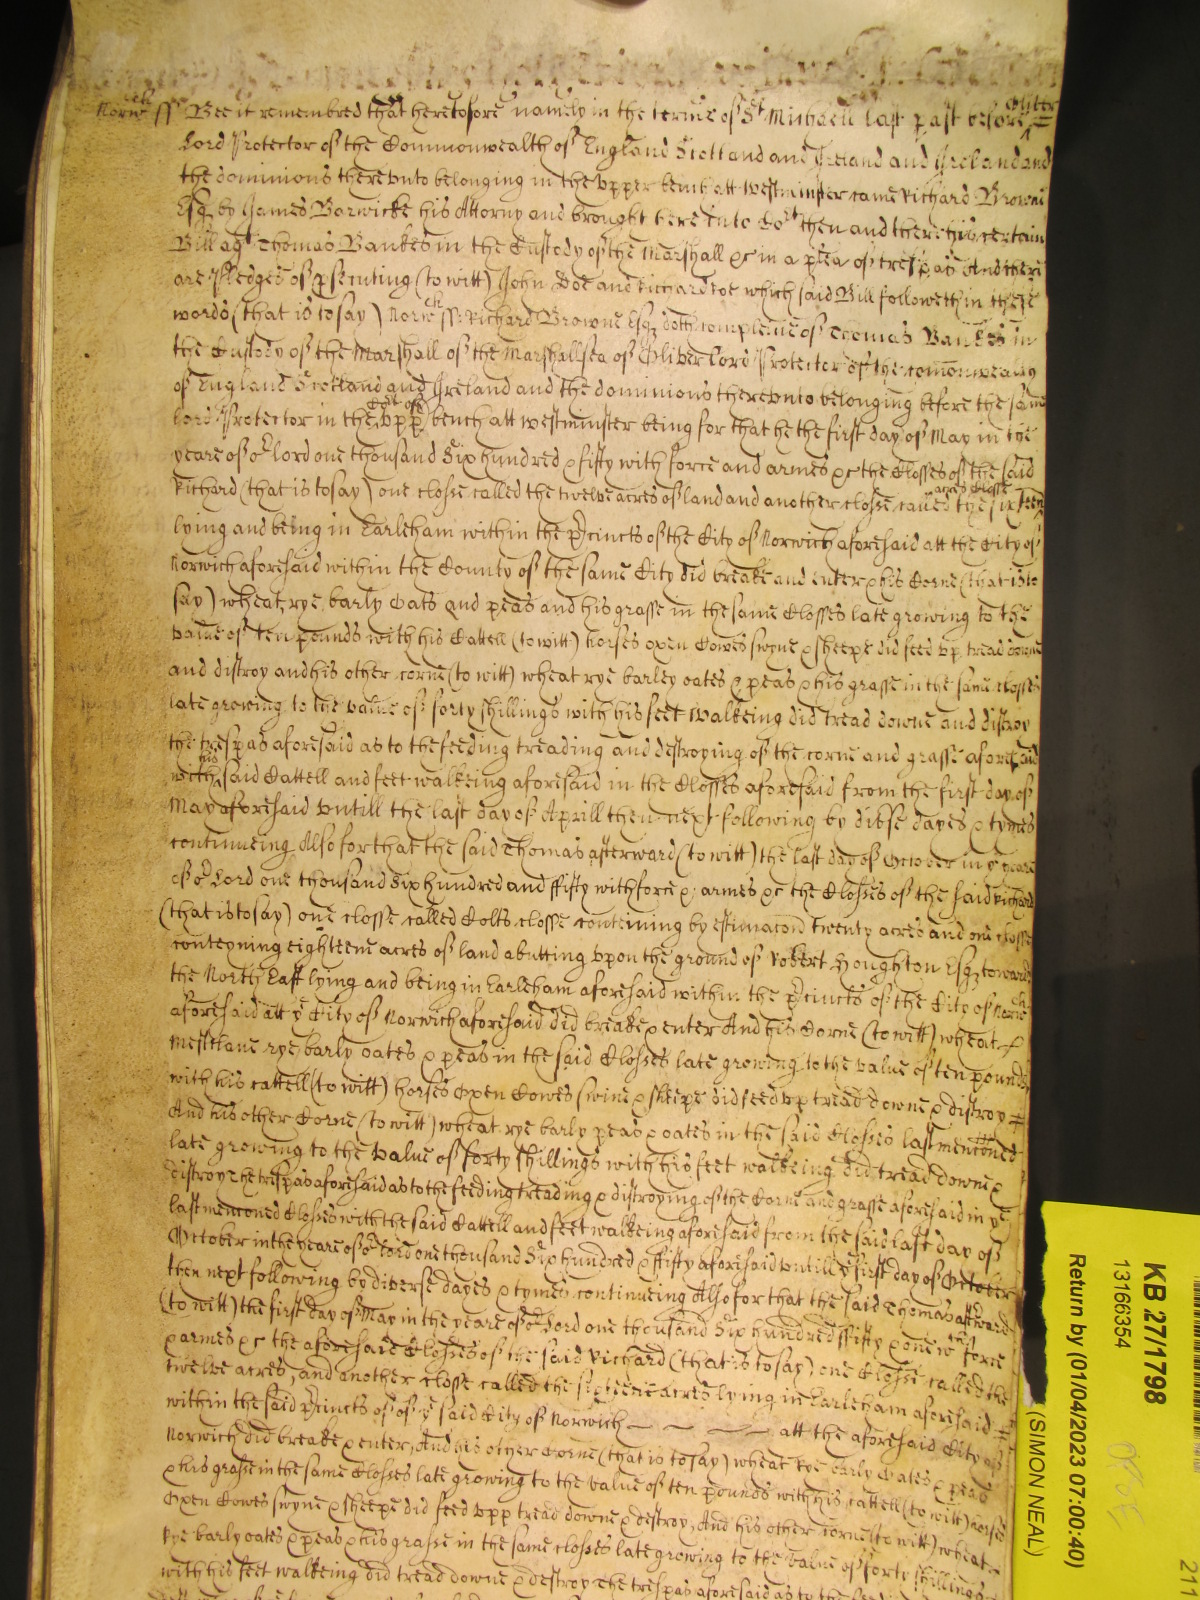 Norwch ss Bee it remembred that heretofore namely in the terme of St Michaell last past before Oliver
Lord Protector of the Commonwealth of England Scotland and Ireland and Ireland and
the dominions therevnto belonging in the vpper bench att Westminster came Richard Browne
Esqr by James Barwicke his Attorny and brought here into Cort then and there his certain
Bill agt Thomas Bankes in the Custody of the Marshall &c in a plea of trespas And there
are Pledges of psecuting (to witt) John Doe and Richard Roe which said Bill followeth in these
words (that is to say) Norwch ss: Richard Browne Esqr doth complaine of Thomas Bankes in
the Custody of the Marshall of the Marshallsea of Oliver Lord Protector of the comonwealth
of England Scotland and Ireland and the dominions therevnto belonging before the same
lord Protector in the Cort of vpp bench att Westminster being for that he the first day of May in the
yeare of or lord one thousand Six hundred & fifty with force and armes &c the Closses of the said
Richard (that is to say) one closse called the twelve acres of land and another closse called the sixteen acres Closse
lying and being in Earleham within the Princts of the City of Norwich aforesaid att the City of
Norwich aforesaid within the County of the same City did breake and enter & his Corne (that is to
say) wheat, rye, barly Oats and peas and his grasse in the same Closses late growing to the
value of ten pounds with his Cattell (to witt) horses oxen Cowes swyne & sheepe did feed vp, tread downe
and distroy and his other corne (to witt) wheat rye barley oates & peas & his grasse in the same closses
late growing to the value of forty shillings with his feet walkeing did tread downe and distroy
the trespas aforesaid as to the feeding treading and destroying of the corne and grasse aforesaid
with his said Cattell and feet walkeing aforesaid in the Closses aforesaid from the first day of
May aforesaid vntill the last day of Aprill then next following by div'se dayes & tymes
continueing Also for that the said Thomas afterward (to witt) the last day of October in ye yeare
of or Lord one thousand Six hundred and ffifty with force & armes &c the Closses of the said Richard
(that is to say) one closse called Colts closse conteining by estimacon twenty acres and one closse
conteyning eighteene acres of land abutting vpon the ground of Robert Houghton Esqr towards
the North East lying and being in Earleham aforesaid within the Princts of the City of Norwch
aforesaid att ye City of Norwich aforesaid did breake & enter And his Corne (to witt) wheat
Messlane rye, barly oates & peas in the said Closses late growing to the value of ten pounds
with his cattell (to witt) horses Oxen Cowes swine & sheepe did feed vp tread downe & distroy
And his other Corne (to witt) wheat rye barly peas & oates in the said Closses last mentioned
late growing to the value of forty shillings with his feet walkeing did tread downe &
distroy The trespas aforesaid as to the feeding treading & distroying of the Corne and grasse aforesaid in ye
last menconed Closses with the said Cattell and feet walkeing aforesaid from the said last day of
October in the yeare of or lord one thousand Six hundred & ffifty aforesaid vntill ye first day of October
then next following by diverse dayes & tymes continueing Also for that the said Thomas aftward
(to witt) the first day of May in the yeare of or Lord one thousand Six hundred ffifty & one wth force
& armes &c the aforesaid Closses of the said Richard (that is to say) one Closse called the
twelve acres, and another closse called the sixteene acres lying in Earleham aforesaid
within the said Princts of of ye said City of Norwich att the aforesaid City of
Norwich did breake & enter, And his other Corne (that is to say) wheat Rye barly Oates & peas
& his grasse in the same Closses late growing to the value of ten pounds with his cattell (to witt) horses
Oxen Cowes swyne & sheepe did feed vpp tread downe & destroy, And his other corne (to witt) wheat
Rye barly oates & peas & his grasse in the same closses late growing to the value of forty shillings
with his feet walkeing did tread downe & destroy The trespas aforesaid as to the
KB 27/1798
13166354
Return by (01/04/2023 07:00:40)
(SIMON NEAL)
211